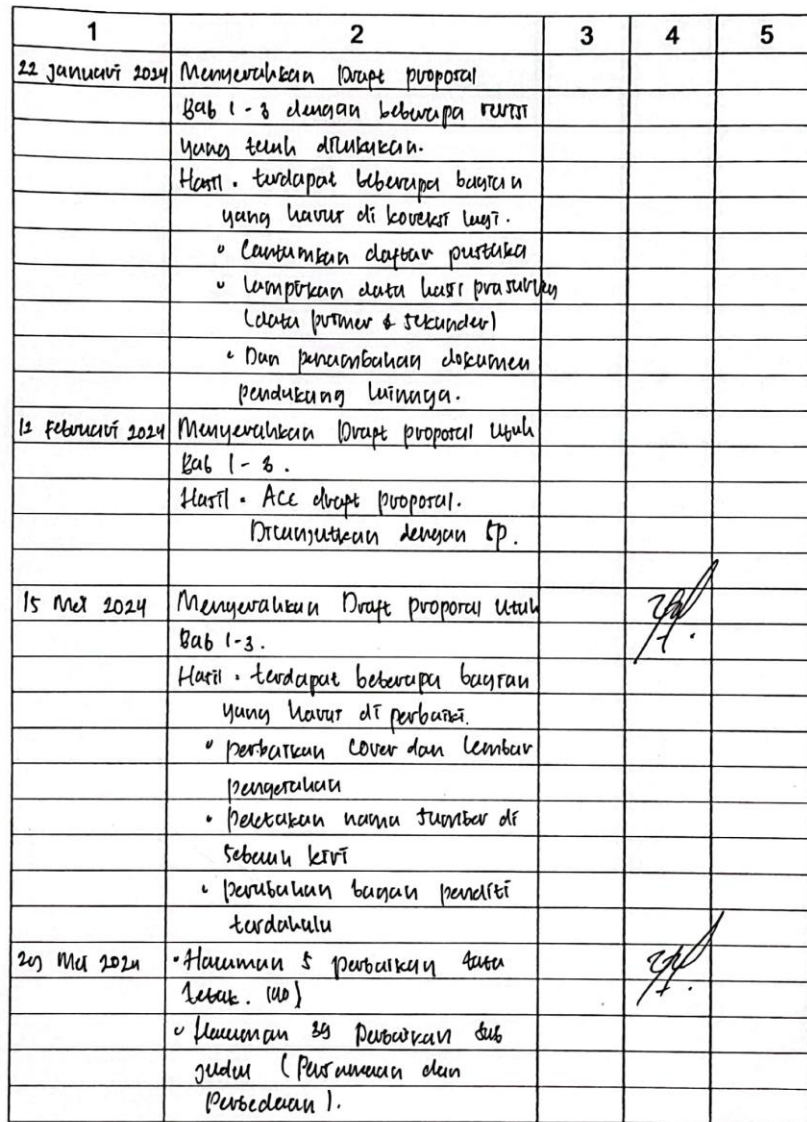 1 2 3 4 5
22 Januari 2024 Menyerahkan Draft proposal
Bab 1 - 3 dengan beberapa revisi
yang telah dilakukan.
Hasil . terdapat beberapa bagian
yang harus di koreksi lagi.
• Cantumkan daftar pustaka
• Lampirkan data hasil prasurvey
(data primer & sekunder)
• Dan penambahan dokumen
pendukung lainnya.
12 Februari 2024 Menyerahkan Draft proposal utuh
Bab 1 - 3.
Hasil . ACC draft proposal.
Dilanjutkan dengan SP.
15 Mei 2024 Menyerahkan Draft proposal utuh
Bab 1-3.
Hasil . terdapat beberapa bagian
yang harus di perbaiki.
• perbaikan cover dan lembar
pengesahan
• peletakan nama sumber di
sebelah kiri
• perubahan bagan peneliti
terdahulu
29 Mei 2024 • Halaman 5 perbaikan tata
letak.
• Halaman 39 Perbaikan sub
judul (Persamaan dan
Perbedaan).